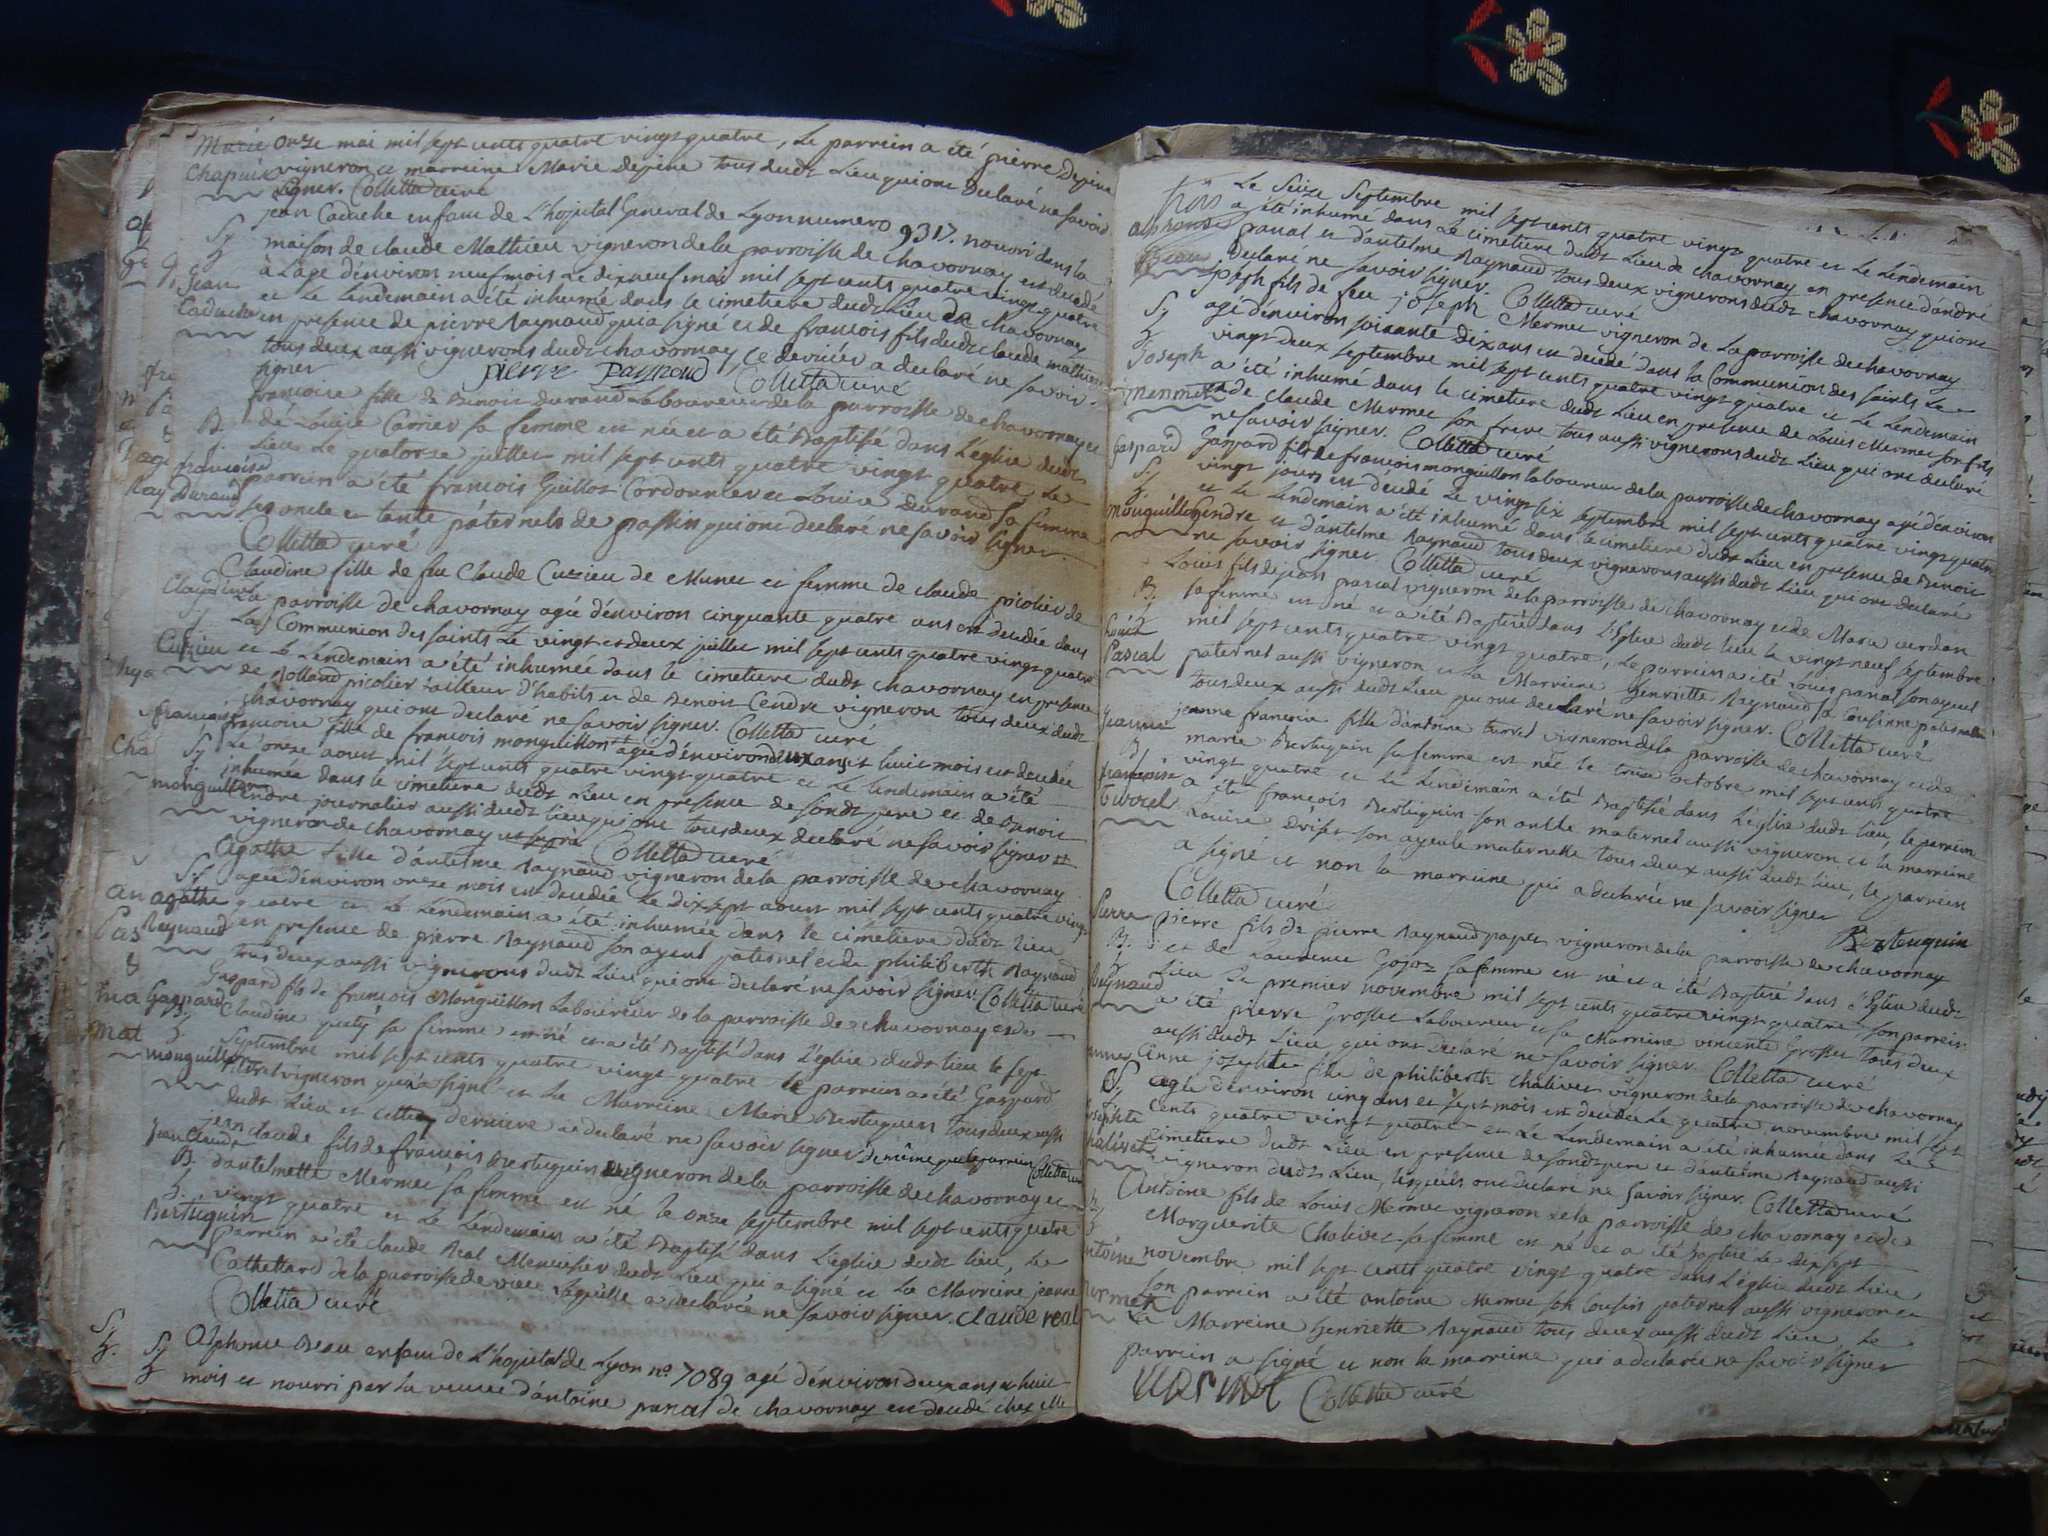 Marie onze mai mil sept cents quatre vingt quatre, Le parrein a été pierre Depine
Chapuix vigneron et marreine Marie depine tous dudt Lieu qui ont declaré ne savoir
signer. Colletta curé
jean Caduche enfant de L'hopital General de Lyon numero 9317. nourri dans la
Sz maison de claude Mathieu vigneron de la parroisse de chavornay est decedé
à L'age d'environ neuf mois Le dixneuf mai mil sept cents quatre vingt quatre
Jean et Le Lendemain a été inhumé dans le cimetiere dudt Lieu de chavornay
Caduche en presence de pierre Raynaud qui a signé et de francois fils dudt claude mathieu
tous deux aussi vignerons dudt chavornay, ce dernier a declaré ne savoir
signer pierre Raynaud Colletta curé
francoise fille de Benoit durand Laboureur de la parroisse de chavornay et
B. de Louise Carrier sa femme est née et a été Baptisée dans L'église dudt
Lieu Le quatorze juillet mil sept cents quatre vingt quatre, Le
francoise parrein a été francois Guillot Cordonnier et Louise durand sa femme
Durand ses oncle et tante paternels de passin qui ont declaré ne savoir signer
Colletta curé
Claudine fille de feu Claude Cuzieu de Munet et femme de claude picolier de
Claudine la parroisse de chavornay agée d'environ cinquante quatre ans est decedée dans
La Communion des saints Le vingt et deux juillet mil sept cents quatre vingt quatre
Cuzieu et Le Lendemain a été inhumée dans le cimetiere dudt chavornay en presence
de Rolland picolier tailleur d'habits et de Benoit Cendre vigneron tous deux dudt
chavornay qui ont declaré ne savoir signer. Colletta curé
francoise francoise fille de francois monguillon agée d'environ deux ans et huit mois est decedée
Sz Le onze aoust mil sept cents quatre vingt quatre et Le Lendemain a été
inhumée dans le cimetiere dudt Lieu en presence de sondt pere et de Benoit
monguillon Cendre journalier aussi dudt Lieu qui ont tous deux declaré ne savoir signer
vigneron de chavornay Colletta curé
Agathe fille d'antelme Raynaud vigneron de la parroisse de chavornay
Sz agée d'environ onze mois est decedée Le dixsept aoust mil sept cents quatre vingt
agathe quatre et Le Lendemain a été inhumée dans le cimetiere dudt Lieu
Reynaud en presence de pierre Raynaud son ayeul paternel et de philiberth Raynaud
tous deux aussi vignerons dudt Lieu qui ont declaré ne savoir signer. Colletta curé
Gaspard fils de francois Monguillon Laboureur de la parroisse de chavornay et de
Gaspard Claudine sa femme est né et a été Baptisé dans L'église dudt lieu le sept
Septembre mil sept cents quatre vingt quatre le parrein a été Gaspard
monguillon vigneron qui a signé et La Marreine Marie Berteguin tous deux aussi
dudt Lieu et cette derniere a declaré ne savoir signer de même que le parrein Colletta curé
jean claude fils de francois Berteguin vigneron de la parroisse de chavornay et
Jean Claude
B. d'antelmette Mermet sa femme est né le onze septembre mil sept cents quatre
vingt quatre et Le Lendemain a été Baptisé dans L'église dudt lieu, Le
Bertiguin parrein a été claude Real Menuisier dudt Lieu qui a signé et La Marreine jeanne
Cathettard de la parroisse de vieu Laquelle a declarée ne savoir signer. claude real
Colletta curé
Sz Alphonse Beau enfant de L'hopital de Lyon no. 7089 agé d'environ deux ans et huit
mois et nourri par la veuve d'antoine pascal de chavornay est decedé chez elle
Le Seize Septembre mil sept cents quatre vingt quatre et Le Lendemain
a été inhumé dans Le cimetiere dudt Lieu de chavornay en presence d'andré
alphonse pascal et d'antelme Raynaud tous deux vignerons dudt chavornay qui ont
Beau declaré ne savoir signer. Colletta curé
joseph fils de feu joseph Mermet vigneron de La parroisse de chavornay
Sz agé d'environ soixante dix ans est decedé dans la Communion des saints Le
vingt deux septembre mil sept cents quatre vingt quatre et Le Lendemain
Joseph a été inhumé dans le cimetiere dudt Lieu en presence de Louis Mermet son fils
Mermet et de claude Mermet son frere tous aussi vignerons dudt Lieu qui ont declaré
ne savoir signer. Colletta curé
Gaspard Gaspard fils de francois monguillon laboureur de la parroisse de chavornay agé d'environ
Sz vingt jours est decedé Le vingt six septembre mil sept cents quatre vingt quatre
et Le Lendemain a été inhumé dans le cimetiere dudt Lieu en presence de Benoit
Monguillon Cendre et d'antelme Raynaud tous deux vignerons aussi dudt Lieu qui ont declaré
ne savoir signer. Colletta curé
Louis fils de jean pascal vigneron de la parroisse de chavornay et de Marie verdan
B. sa femme est né et a été Baptisé dans L'Eglise dudt lieu le vingt neuf septembre
Louis mil sept cents quatre vingt quatre, Le parrein a été Louis pascal son ayeul
Pascal paternel aussi vigneron et La Marreine Henriette Raynaud sa Cousinne paternelle
tous deux aussi dudt Lieu qui ont declaré ne savoir signer. Colletta curé
Jeanne jeanne francoise fille d'antoine turrel vigneron de la parroisse de chavornay et de
B. marie Berteguin sa femme est née le treize octobre mil sept cents quatre
francoise vingt quatre et le Lendemain a été Baptisée dans L'église dudt lieu, le parrein
a été francois Berteguin son oncle maternel aussi vigneron et la marreine
Louise Drifet son ayeule maternelle tous deux aussi dudt Lieu, le parrein
a signé et non la marreine qui a declarée ne savoir signer
Colletta curé Berteuguin
Pierre pierre fils de pierre Raynaud papet vigneron de la parroisse de chavornay
B. et de Laurence Gojoz sa femme est né et a été Baptisé dans L'Eglise dudt
Reynaud Lieu Le premier novembre mil sept cents quatre vingt quatre, son parrein
a été pierre Grosset Laboureur et sa Marreine vincente Grosset tous deux
aussi dudt Lieu qui ont declaré ne savoir signer. Colletta curé
anne Anne josephte fille de philiberth Chalivet vigneron de la parroisse de chavornay
Sz agée d'environ cinq ans et sept mois est decedée Le quatre novembre mil sept
josephte cents quatre vingt quatre et Le Lendemain a été inhumée dans Le
chalivet cimetiere dudt Lieu en presence de sondt pere et d'antelme Raynaud aussi
vigneron dudt Lieu, lesquels ont declaré ne savoir signer. Colletta curé
Antoine fils de Louis Mermet vigneron de la parroisse de chavornay et de
Marguerite Chalivet sa femme est né et a été Baptisé Le dixsept
Antoine novembre mil sept cents quatre vingt quatre dans L'église dudt Lieu
son parrein a été Antoine Mermet son Cousin paternel aussi vigneron et
mermet La Marreine Henriette Raynaud tous deux aussi dudt Lieu, Le
parrein a signé et non la marreine qui a declarée ne savoir signer
Colletta curé